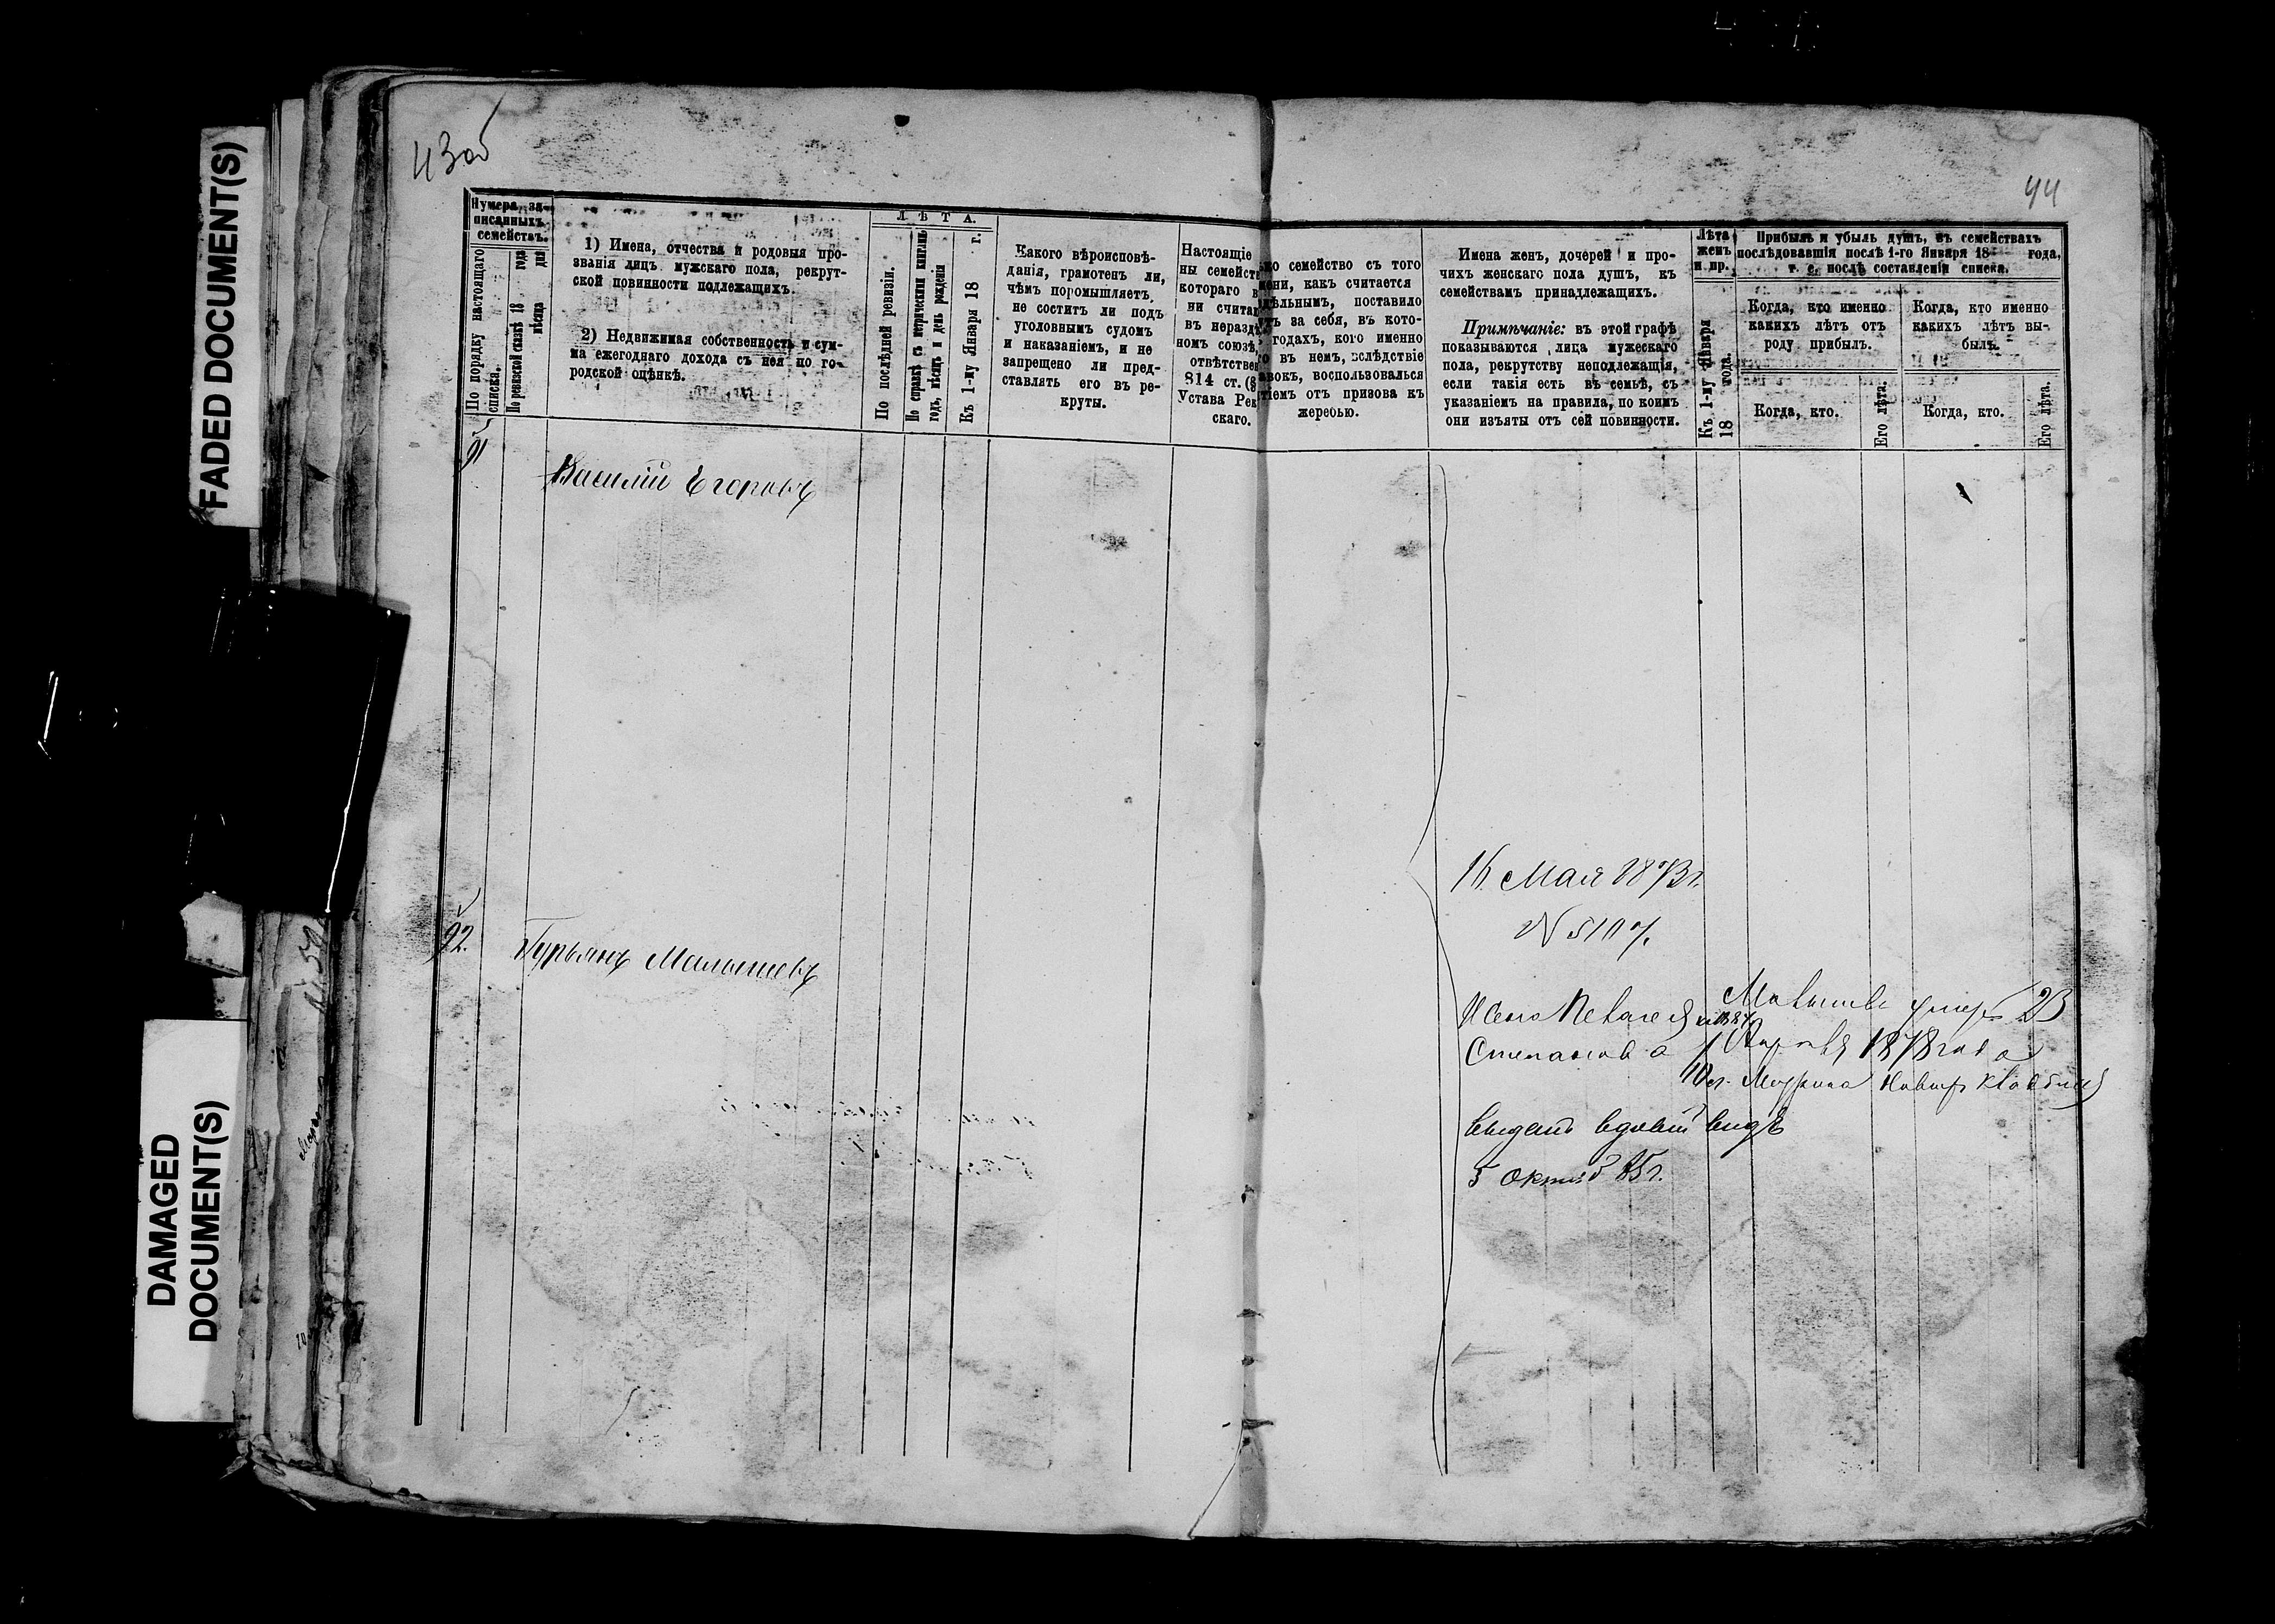 FADED DOCUMENT(S)
DAMAGED
DOCUMENT(S)
43об
44
Нумера за-
писанныхъ
семействъ.
По порядку настоящаго
списка.
По ревизской сказкѣ 18 года
мѣсяца дня
1) Имена, отчества и родовыя про-
званія лицъ мужскаго пола, рекрут-
ской повинности подлежащихъ.
2) Недвижимая собственность и сум-
ма ежегоднаго дохода съ нея по го-
родской оцѣнкѣ.
ЛѢТА.
По послѣдней ревизіи.
По справкѣ съ метрическими книгами
годъ, мѣсяцъ и день рожденія
Къ 1-му Января 18 г.
Какого вѣроисповѣ-
данія, грамотенъ ли,
чѣмъ поромышляетъ,
не соститъ ли подъ
уголовнымъ судомъ
и наказаніемъ, и не
запрещено ли пред-
ставлять его въ ре-
круты.
Настоящіе
ны семейств
котораго в
ни считая
въ неразд
номъ союзѣ,
отвѣтствен
814 ст. (§
Устава Рек
скаго.
ко семейство съ того
мени, какъ считается
дѣльнымъ, поставило
тъ за себя, въ кото-
годахъ, кого именно
го въ немъ, вслѣдствіе
авокъ, воспользовалься
тіемъ отъ призова къ
жеребью.
Имена женъ, дочерей и про-
чихъ женскаго пола душъ, къ
семействамъ принадлежащихъ.
Примѣчаніе: въ этой графѣ
показываются лица мужескаго
пола, рекрутству неподлежащія,
если такія есть въ семьѣ, съ
указаніемъ на правила, по коимъ
они изъяты отъ сей повинности.
Лѣта
женъ
и пр.
Къ 1-му Января
18 года.
Прибыль и убыль душъ, въ семействахъ
послѣдовавшія послѣ 1-го Января 18 года,
т. е. послѣ составленія списка.
Когда, кто именно
какихъ лѣтъ отъ
роду прибылъ.
Когда, кто именно
какихъ лѣтъ вы-
былъ.
Когда, кто.
Его лѣта.
Когда, кто.
Его лѣта.
91
Василій Егоровъ
16 Мая 1873 г.
№ 5107.
92.
Гурьянъ Малышевъ
Жена Пелагея
Малышевъ умеръ 23
Степанова
1878 года
выданъ вдовій видъ
5 Октяб 85 г.